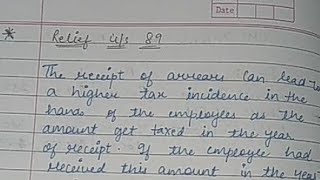 Date
* Relief u/s 89
The receipt of arrears can lead to
a higher tax incidence in the
hands of the employees as the
amount get taxed in the year
of receipt. If the employee had
received this amount in the year